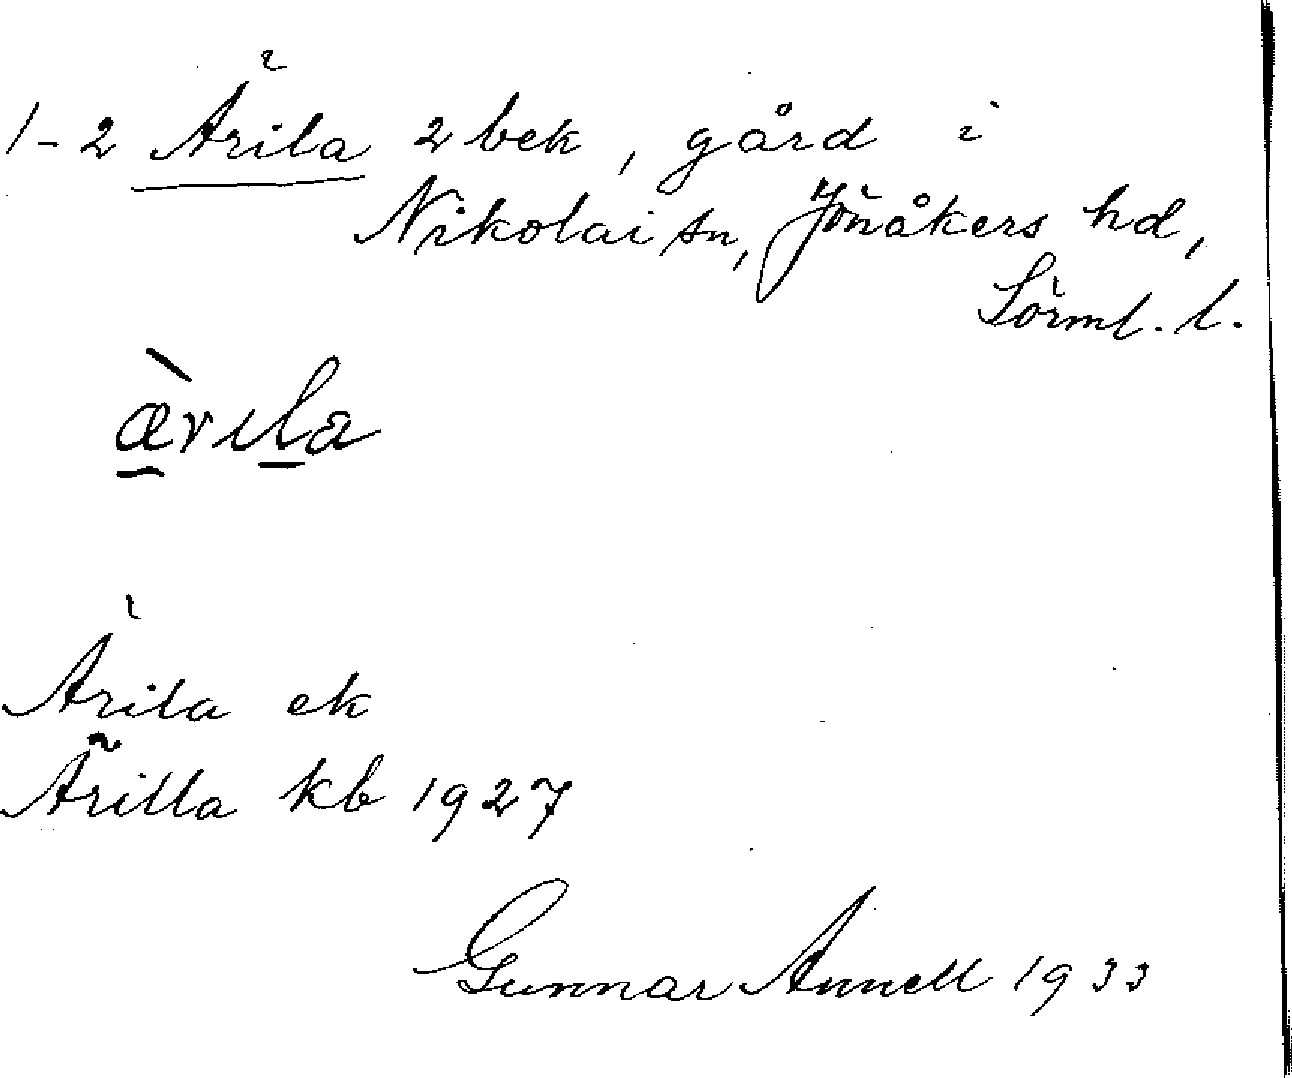 1-2 Ärila 2 bek, gård i
Nikolai sn, Jönåkers hd,
Sörml. l.
ærıla
Ärila ek
Ärilla kb 1927
Gunnar Annell 1933